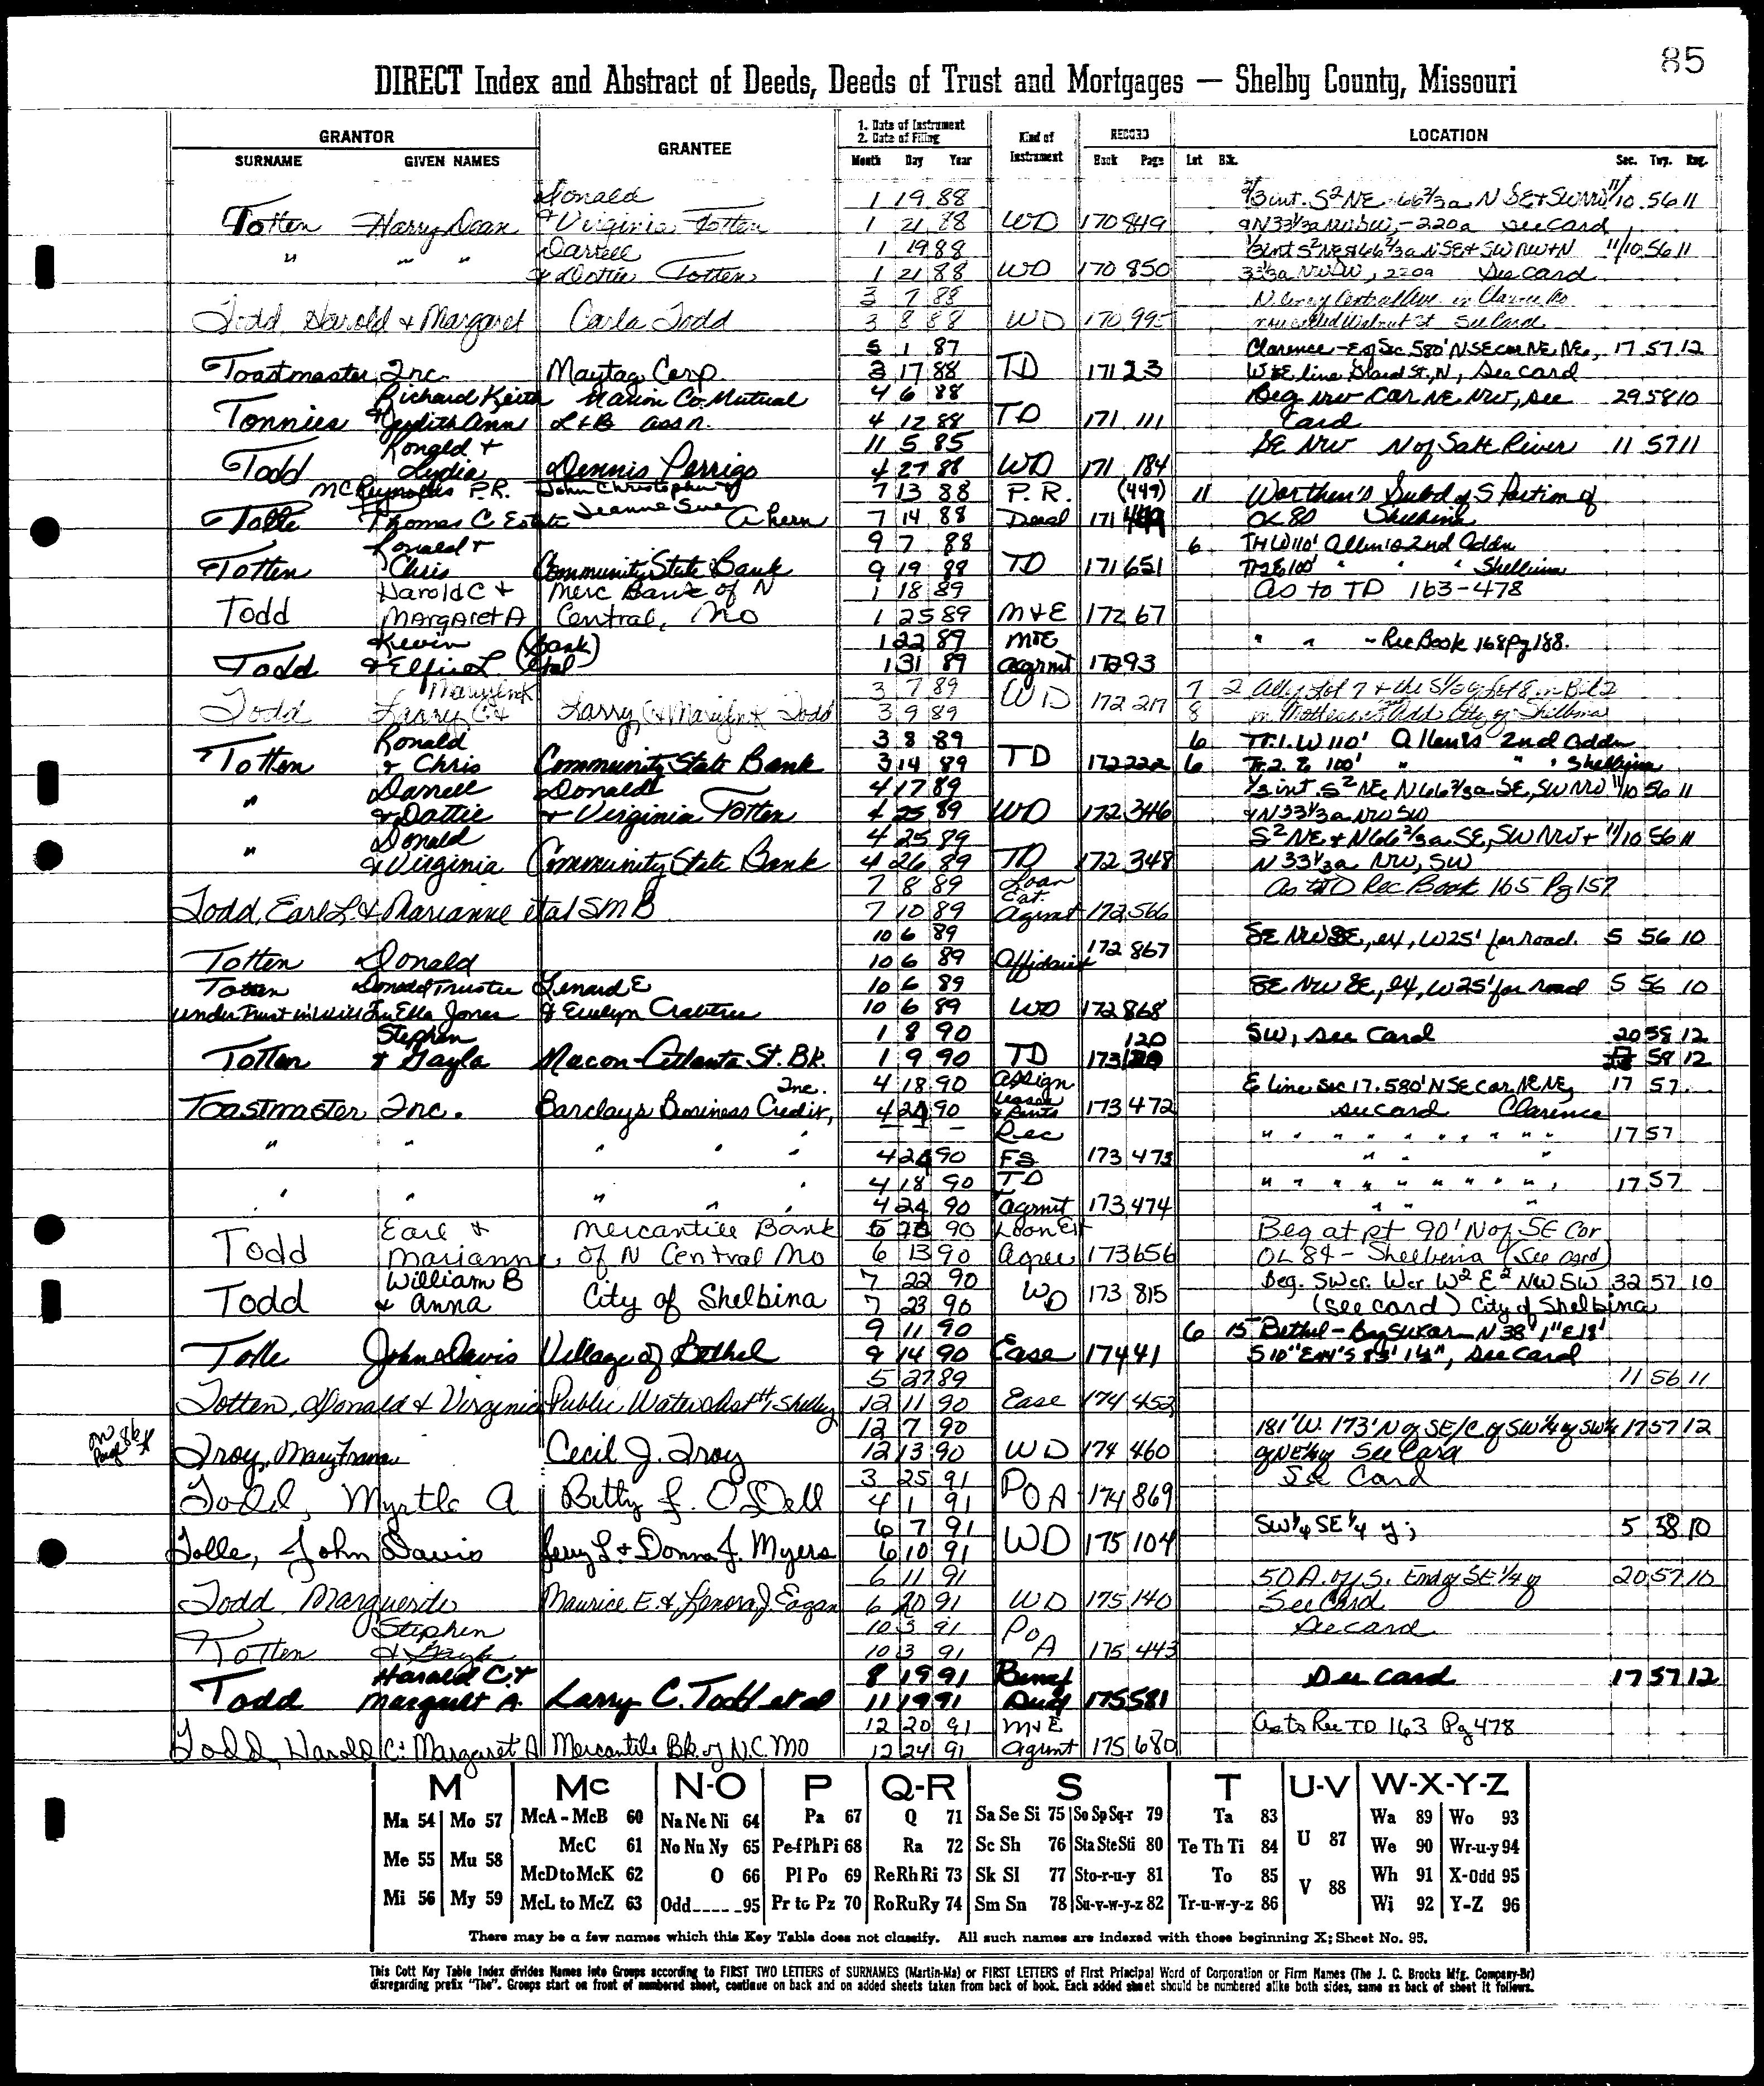 85
DIRECT Index and Abstract of Deeds, Deeds of Trust and Mortgages — Shelby County, Missouri
GRANTOR
SURNAME GIVEN NAMES
GRANTEE
1. Date of Instrument
2. Date of Filing
Month Day Year
Kind of Instrument
RECORD
Book Page
LOCATION
Lot Blk. Sec. Twp. Rng.
Donald 1 19 88 11/10 56 11
Totten Harry Dean & Virginia Totten 1 21 88 WD 170 849 & N33⅓a NWSW, -220a See card
Darrell 1 19 88 11/10 56 11
" " " & Dottie Totten 1 21 88 WD 170 850 33⅓a NWSW, 220a See card
3 7 88
Todd, Harold & Margaret Carla Todd 3 8 88 WD 170 995 now called Walnut St See Card
5 1 87 Clarence-E of Sec 580' N SE cor NE NE, 17 57 12
Toastmaster, Inc. Maytag Corp 3 17 88 TD 171 23 W & E line Shard St, N, see card
Richard Keith Marion Co. Mutual 4 6 88 Beg NW Cor NE NW, see 29 58 10
Tonnies & Judith Ann L+B Assn. 4 12 88 TD 171 111 Card
Ronald + 11 5 85 SE NW N of Salt River 11 57 11
Todd Lydia Dennis Perrigo 4 27 88 WD 171 184
McReynolds P.R. John Christopher & 7 13 88 P.R. (449) 11 Worthen's Subd of S Portion of
Tolle Thomas C Estate Jeanne Sue Ahern 7 14 88 Deed 171 449 OL 80 Shelbina
Ronald + 9 7 88 6 Tr1 W110' Allen's 2nd Addn
Totten Chris Community State Bank 9 19 88 TD 171 651 Tr2 E100' " " " Shelbina
Harold C + Merc Bank of N 1 18 89 As to TD 163-478
Todd Margaret A Central, Mo 1 25 89 M+E 172 67
Kevin (Bank) 1 22 89 M+E " " - Rec Book 168 Pg 188.
Todd & Elfie L. etal 1 31 89 Agrmt 172 93
Marilyn K 3 7 89 7 2 All of Lot 7 + the S½ of Lot 8 in Bl 2
Todd Larry C + Larry C + Marilyn K Todd 3 9 89 WD 172 217 8 Add City of Shelbina
Ronald 3 8 89 6 Tr.1. W 110' Allen's 2nd Addn
Totten & Chris Community State Bank 3 14 89 TD 172 222 6 Tr.2. E 100' " " " Shelbina
Darrell Donald 4 17 89 ⅓ int. S² NE, N66⅔a SE, SW NW 11/10 56 11
" & Dottie & Virginia Totten 4 25 89 WD 172 346 & N33⅓a NW SW
Donald 4 25 89 S² NE + N66⅔a SE, SW NW + 11/10 56 11
" & Virginia Community State Bank 4 26 89 TD 172 348 N33⅓a NW, SW
7 8 89 Loan Ext. As to TD Rec Book 165 Pg 157
Todd, Earl L. & Marianne etal SMB 7 10 89 Agrmt 172 566
10 6 89 SE NW SE, ex, W25' for road. 5 56 10
Totten Donald 10 6 89 Affidavit 172 867
Totten Donald Trustee Lenard E 10 6 89 SE NW SE, ex, W25' for road 5 56 10
under Trust in Will Lu Ella Jones & Evelyn Crabtree 10 6 89 WD 172 868
Stephen 1 8 90 120 SW, see Card 20 58 12
Totten & Gayla Macon-Atlanta St. Bk. 1 9 90 TD 173 58 12
Inc. 4 18 90 Assign E line Sec 17. 580' N SE cor NE NE, 17 57
Toastmaster Inc. Barclays Business Credit, 4 24 90 Leases & Rents 173 472 see card Clarence
— — — Rec " " " " " " " " " " 17 57
" " " " " 4 24 90 FS 173 473 " " "
4 18 90 TD " " " " " " " " " " 17 57
" " " " " 4 24 90 Agrmt 173 474 " " "
Earl + Mercantile Bank 5 90 Loan Ext Beg at pt 90' N of SE Cor
Todd Marianne of N Central Mo 6 13 90 Agree 173 656 OL 84 - Shelbina (See card)
William B 7 22 90 Beg. SW cr. W cr W² E² NW SW 32 57 10
Todd & Anna City of Shelbina 7 23 90 WD 173 815 (see card) City of Shelbina
9 11 90 6 15 Bethel - Beg SW cor - N 38' 1" E 18'
Tolle John Davis Village of Bethel 9 14 90 Ease 174 41 See Card
5 27 89 11 56 11
Totten, Donald & Virginia Public Water Dist #1 Shelby 12 11 90 Ease 174 452
12 7 90 181' W. 173' N of SE/C of SW¼ of SW¼ 17 57 12
on Page 86 Troy, Mary Frances Cecil J. Troy 12 13 90 WD 174 460 of NE¼ of See Card
3 25 91 See Card
Todd, Myrtle A Betty L. O'Dell 4 1 91 POA 174 869
6 7 91 SW¼ SE¼ of; 5 58 10
Tolle, John Davis Jerry L. & Donna J. Myers 6 10 91 WD 175 104
6 11 91 50 A. of S. End of SE¼ of 20 57 10
Todd Marguerite Maurice E. & Lenora J. Eagan 6 20 91 WD 175 140 See Card
Stephen 10 3 91 See card
Totten & Gayla 10 3 91 POA 175 443
Harold C. & 8 19 91 Benef See card 17 57 12
Todd Margaret A. Larry C. Todd et al 11 19 91 Deed 175 581
12 20 91 M+E As to Rec TD 163 Pg 478
Todd, Harold C. Margaret A Mercantile Bk. of N.C. MO 12 24 91 Agrmt 175 680
M Mc N-O P Q-R S T U-V W-X-Y-Z
Ma 54 Mo 57 McA-McB 60 Na Ne Ni 64 Pa 67 Q 71 Sa Se Si 75 So Sp Sq-r 79 Ta 83 U 87 Wa 89 Wo 93
Me 55 Mu 58 McC 61 No Nu Ny 65 Pe-f Ph Pi 68 Ra 72 Sc Sh 76 Sta Ste Sti 80 Te Th Ti 84 V 88 We 90 Wr-u-y 94
McD to McK 62 O 66 Pl Po 69 Re Rh Ri 73 Sk Sl 77 Sto-r-u-y 81 To 85 Wh 91 X-Odd 95
Mi 56 My 59 McL to McZ 63 Odd_____95 Pr to Pz 70 Ro Ru Ry 74 Sm Sn 78 Su-v-w-y-z 82 Tr-u-w-y-z 86 Wi 92 Y-Z 96
There may be a few names which this Key Table does not classify. All such names are indexed with those beginning X; Sheet No. 95.
This Cott Key Table Index divides Names into Groups according to FIRST TWO LETTERS of SURNAMES (Martin-Ma) or FIRST LETTERS of First Principal Word of Corporation or Firm Names (The J. C. Brocks Mfg. Company-Br)
disregarding prefix "The". Groups start on front of numbered sheet, continue on back and on added sheets taken from back of book. Each added sheet should be numbered alike both sides, same as back of sheet it follows.